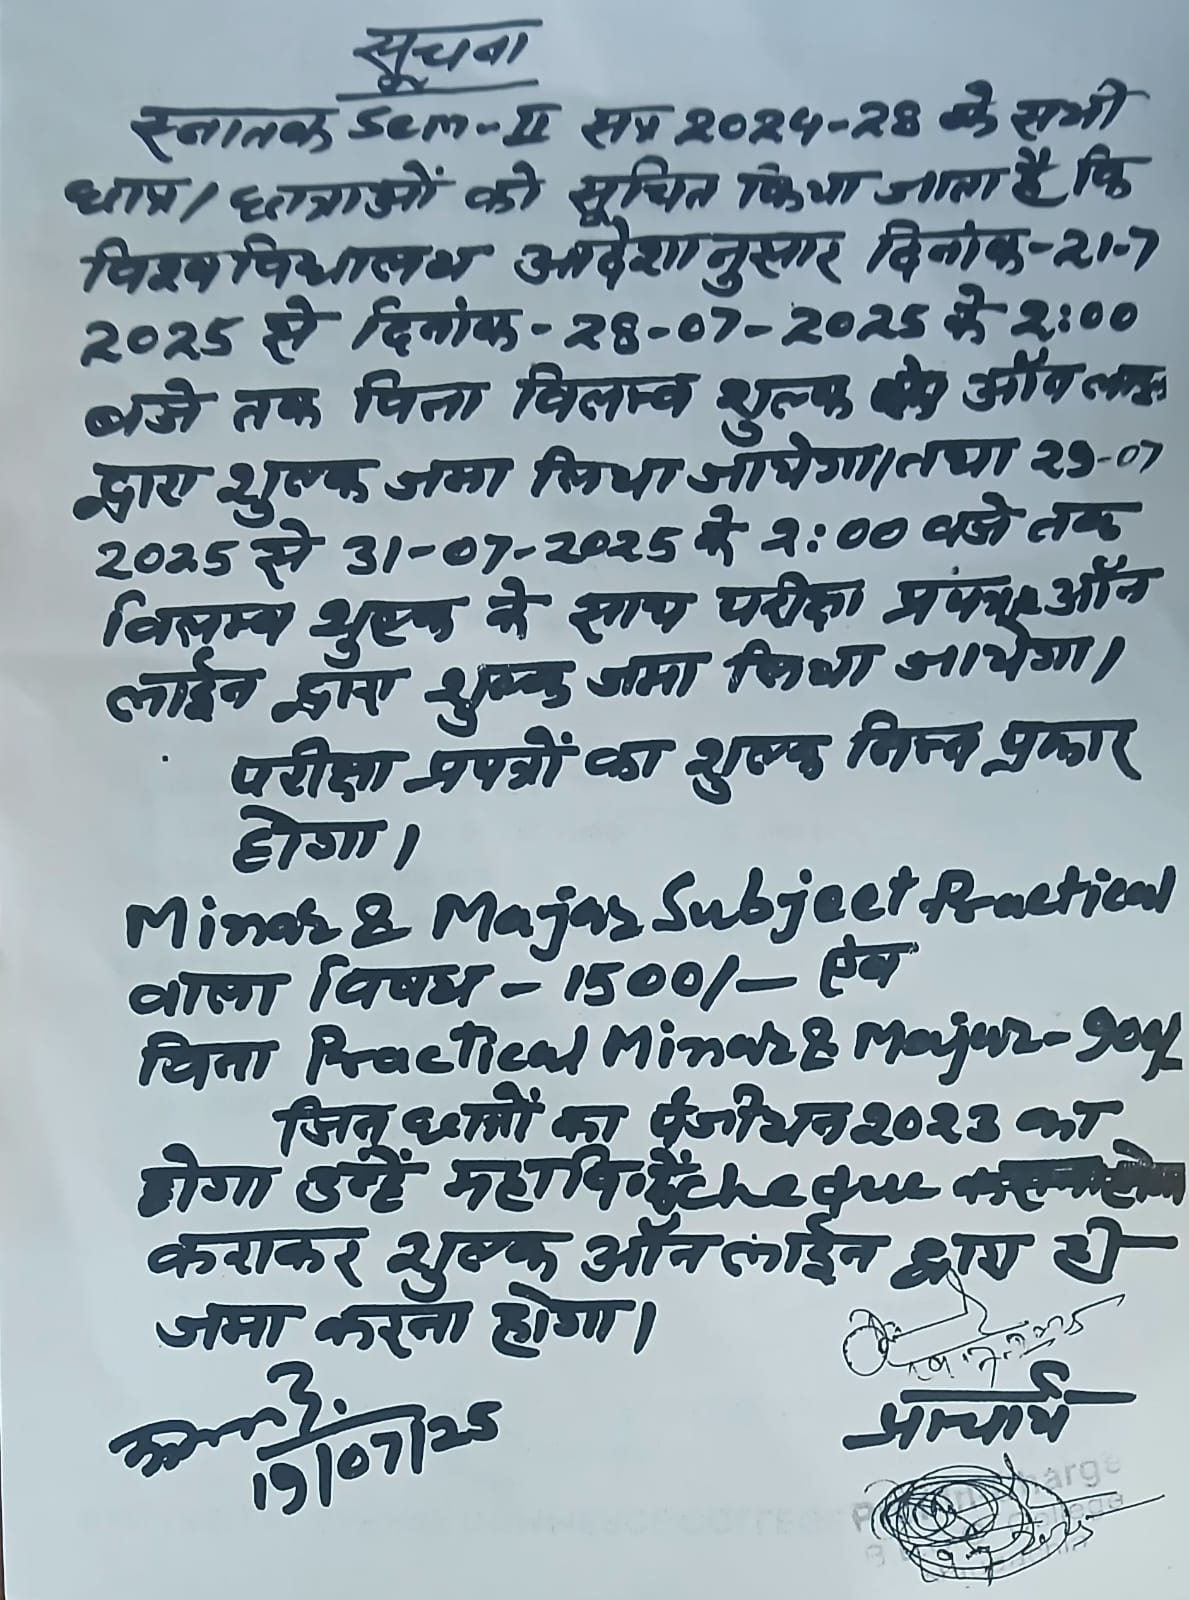 सूचना
स्नातक Sem-II सत्र 2024-28 के सभी
छात्र/छात्राओं को सूचित किया जाता है कि
विश्वविद्यालय आदेशानुसार दिनांक-21-7
2025 से दिनांक-28-07-2025 के 2:00
बजे तक विना विलम्व शुल्क ऑन लाइन
द्वारा शुल्क जमा लिया जायेगा। तथा 29-07
2025 से 31-07-2025 के 2:00 वजे तक
विलम्व शुल्क के साथ परीक्षा प्रपत्र ऑन
लाईन द्वारा शुल्क जमा लिया जायेगा।
परीक्षा प्रपत्रों का शुल्क निम्न प्रकार
होगा।
Minar & Majar Subject Practical
वाला विषय - 1500/- ऐव
विना Practical Minar & Majar-
जिन छात्रों का पंजीयन 2023 का
होगा उन्हें cheque
कराकर शुल्क ऑनलाईन द्वारा ही
जमा करना होगा।
19/07/25
प्राचार्य